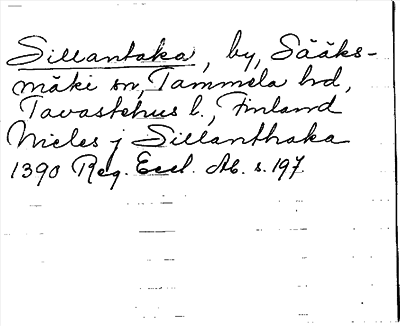 Sillantaka, by, Sääks-
mäki sn, Tammela hd,
Tavastehus l., Finland
Nicles j Sillanthaka
1390 Reg. Eccl. Ab. s. 197.